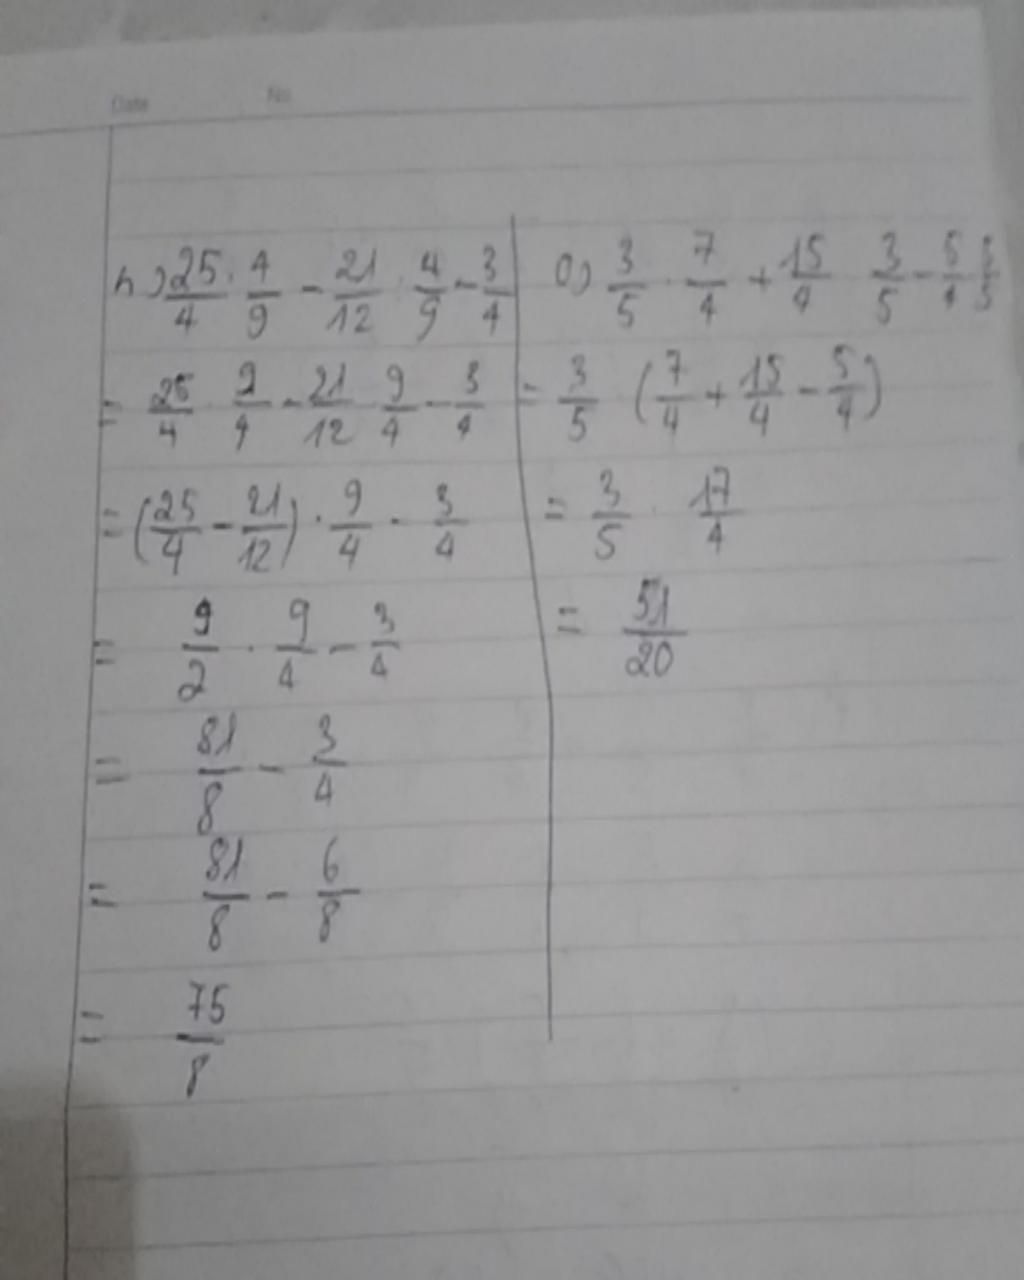 Date No
n) \frac{25}{4} \cdot \frac{4}{9} - \frac{21}{12} \cdot \frac{4}{9} - \frac{3}{4}
= \frac{25}{4} \cdot \frac{9}{4} - \frac{21}{12} \cdot \frac{9}{4} - \frac{3}{4}
= (\frac{25}{4} - \frac{21}{12}) \cdot \frac{9}{4} - \frac{3}{4}
= \frac{9}{2} \cdot \frac{9}{4} - \frac{3}{4}
= \frac{81}{8} - \frac{3}{4}
= \frac{81}{8} - \frac{6}{8}
= \frac{75}{8}
o) \frac{3}{5} \cdot \frac{7}{4} + \frac{15}{4} \cdot \frac{3}{5} - \frac{5}{4} \cdot \frac{3}{5}
= \frac{3}{5} \cdot (\frac{7}{4} + \frac{15}{4} - \frac{5}{4})
= \frac{3}{5} \cdot \frac{17}{4}
= \frac{51}{20}